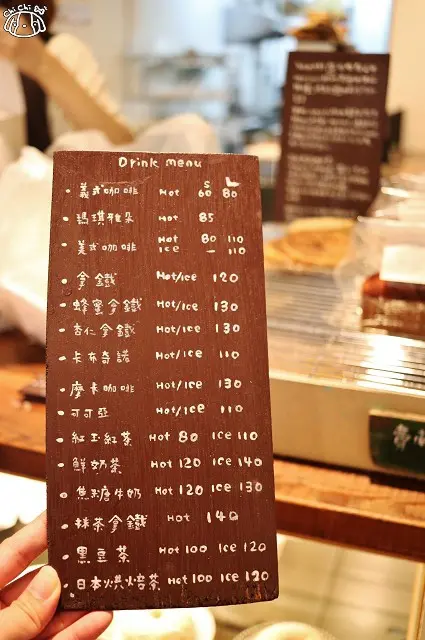 Chi Chi Bo
Drink menu
S L
義式咖啡 Hot 60 80
瑪琪雅朵 Hot 85
美式咖啡 Hot 80 110
Ice – 110
拿鐵 Hot/Ice 120
蜂蜜拿鐵 Hot/Ice 130
杏仁拿鐵 Hot/Ice 130
卡布奇諾 Hot/Ice 110
摩卡咖啡 Hot/Ice 130
可可亞 Hot/Ice 110
紅玉紅茶 Hot 80 Ice 110
鮮奶茶 Hot 120 Ice 140
焦糖牛奶 Hot 120 Ice 130
抹茶拿鐵 Hot 140
黑豆茶 Hot 100 Ice 120
日本烘焙茶 Hot 100 Ice 120